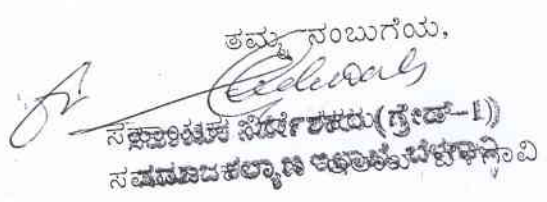 ತಮ್ಮ ನಂಬುಗೆಯ,
ಸಹಾಯಕ ನಿರ್ದೇಶಕರು(ಗ್ರೇಡ್-1)
ಸಮಾಜ ಕಲ್ಯಾಣ ಇಲಾಖೆ ಬೆಳಗಾವಿ